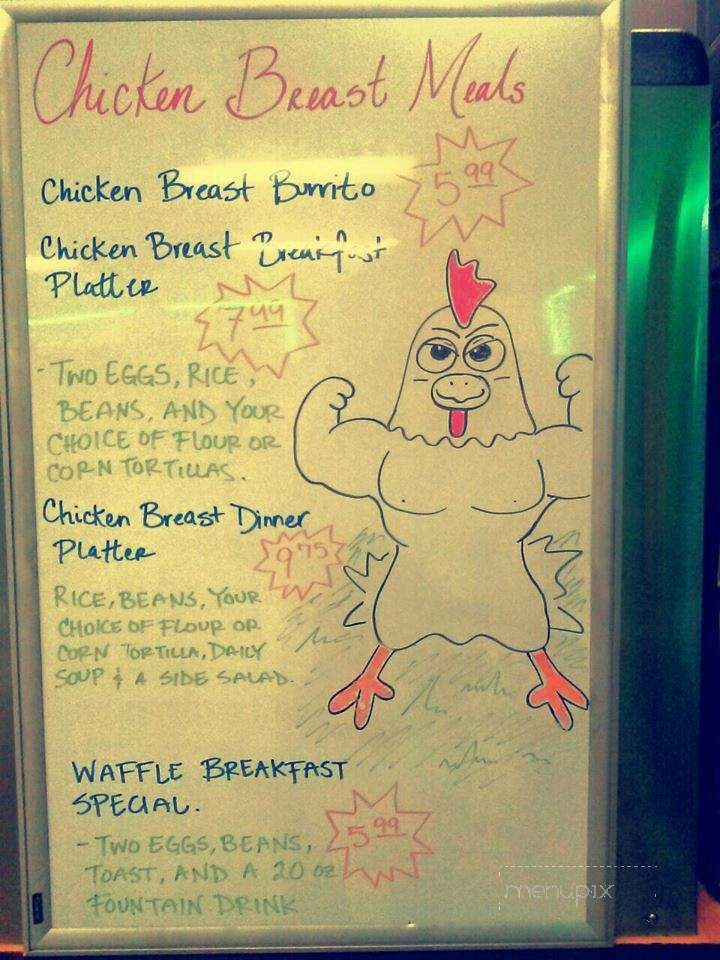 Chicken Breast Meals
Chicken Breast Burrito
5.99
Chicken Breast Breakfast
Platter
7.49
- TWO EGGS, RICE,
BEANS, AND YOUR
CHOICE OF FLOUR OR
CORN TORTILLAS.
Chicken Breast Dinner
Platter
9.75
RICE, BEANS, YOUR
CHOICE OF FLOUR OR
CORN TORTILLA, DAILY
SOUP & A SIDE SALAD.
WAFFLE BREAKFAST
SPECIAL.
5.99
- TWO EGGS, BEANS,
TOAST, AND A 20 oz
FOUNTAIN DRINK
menupix